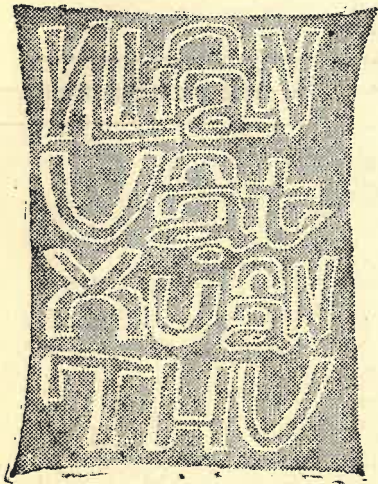 NHâN
Vật
XUâN
THU